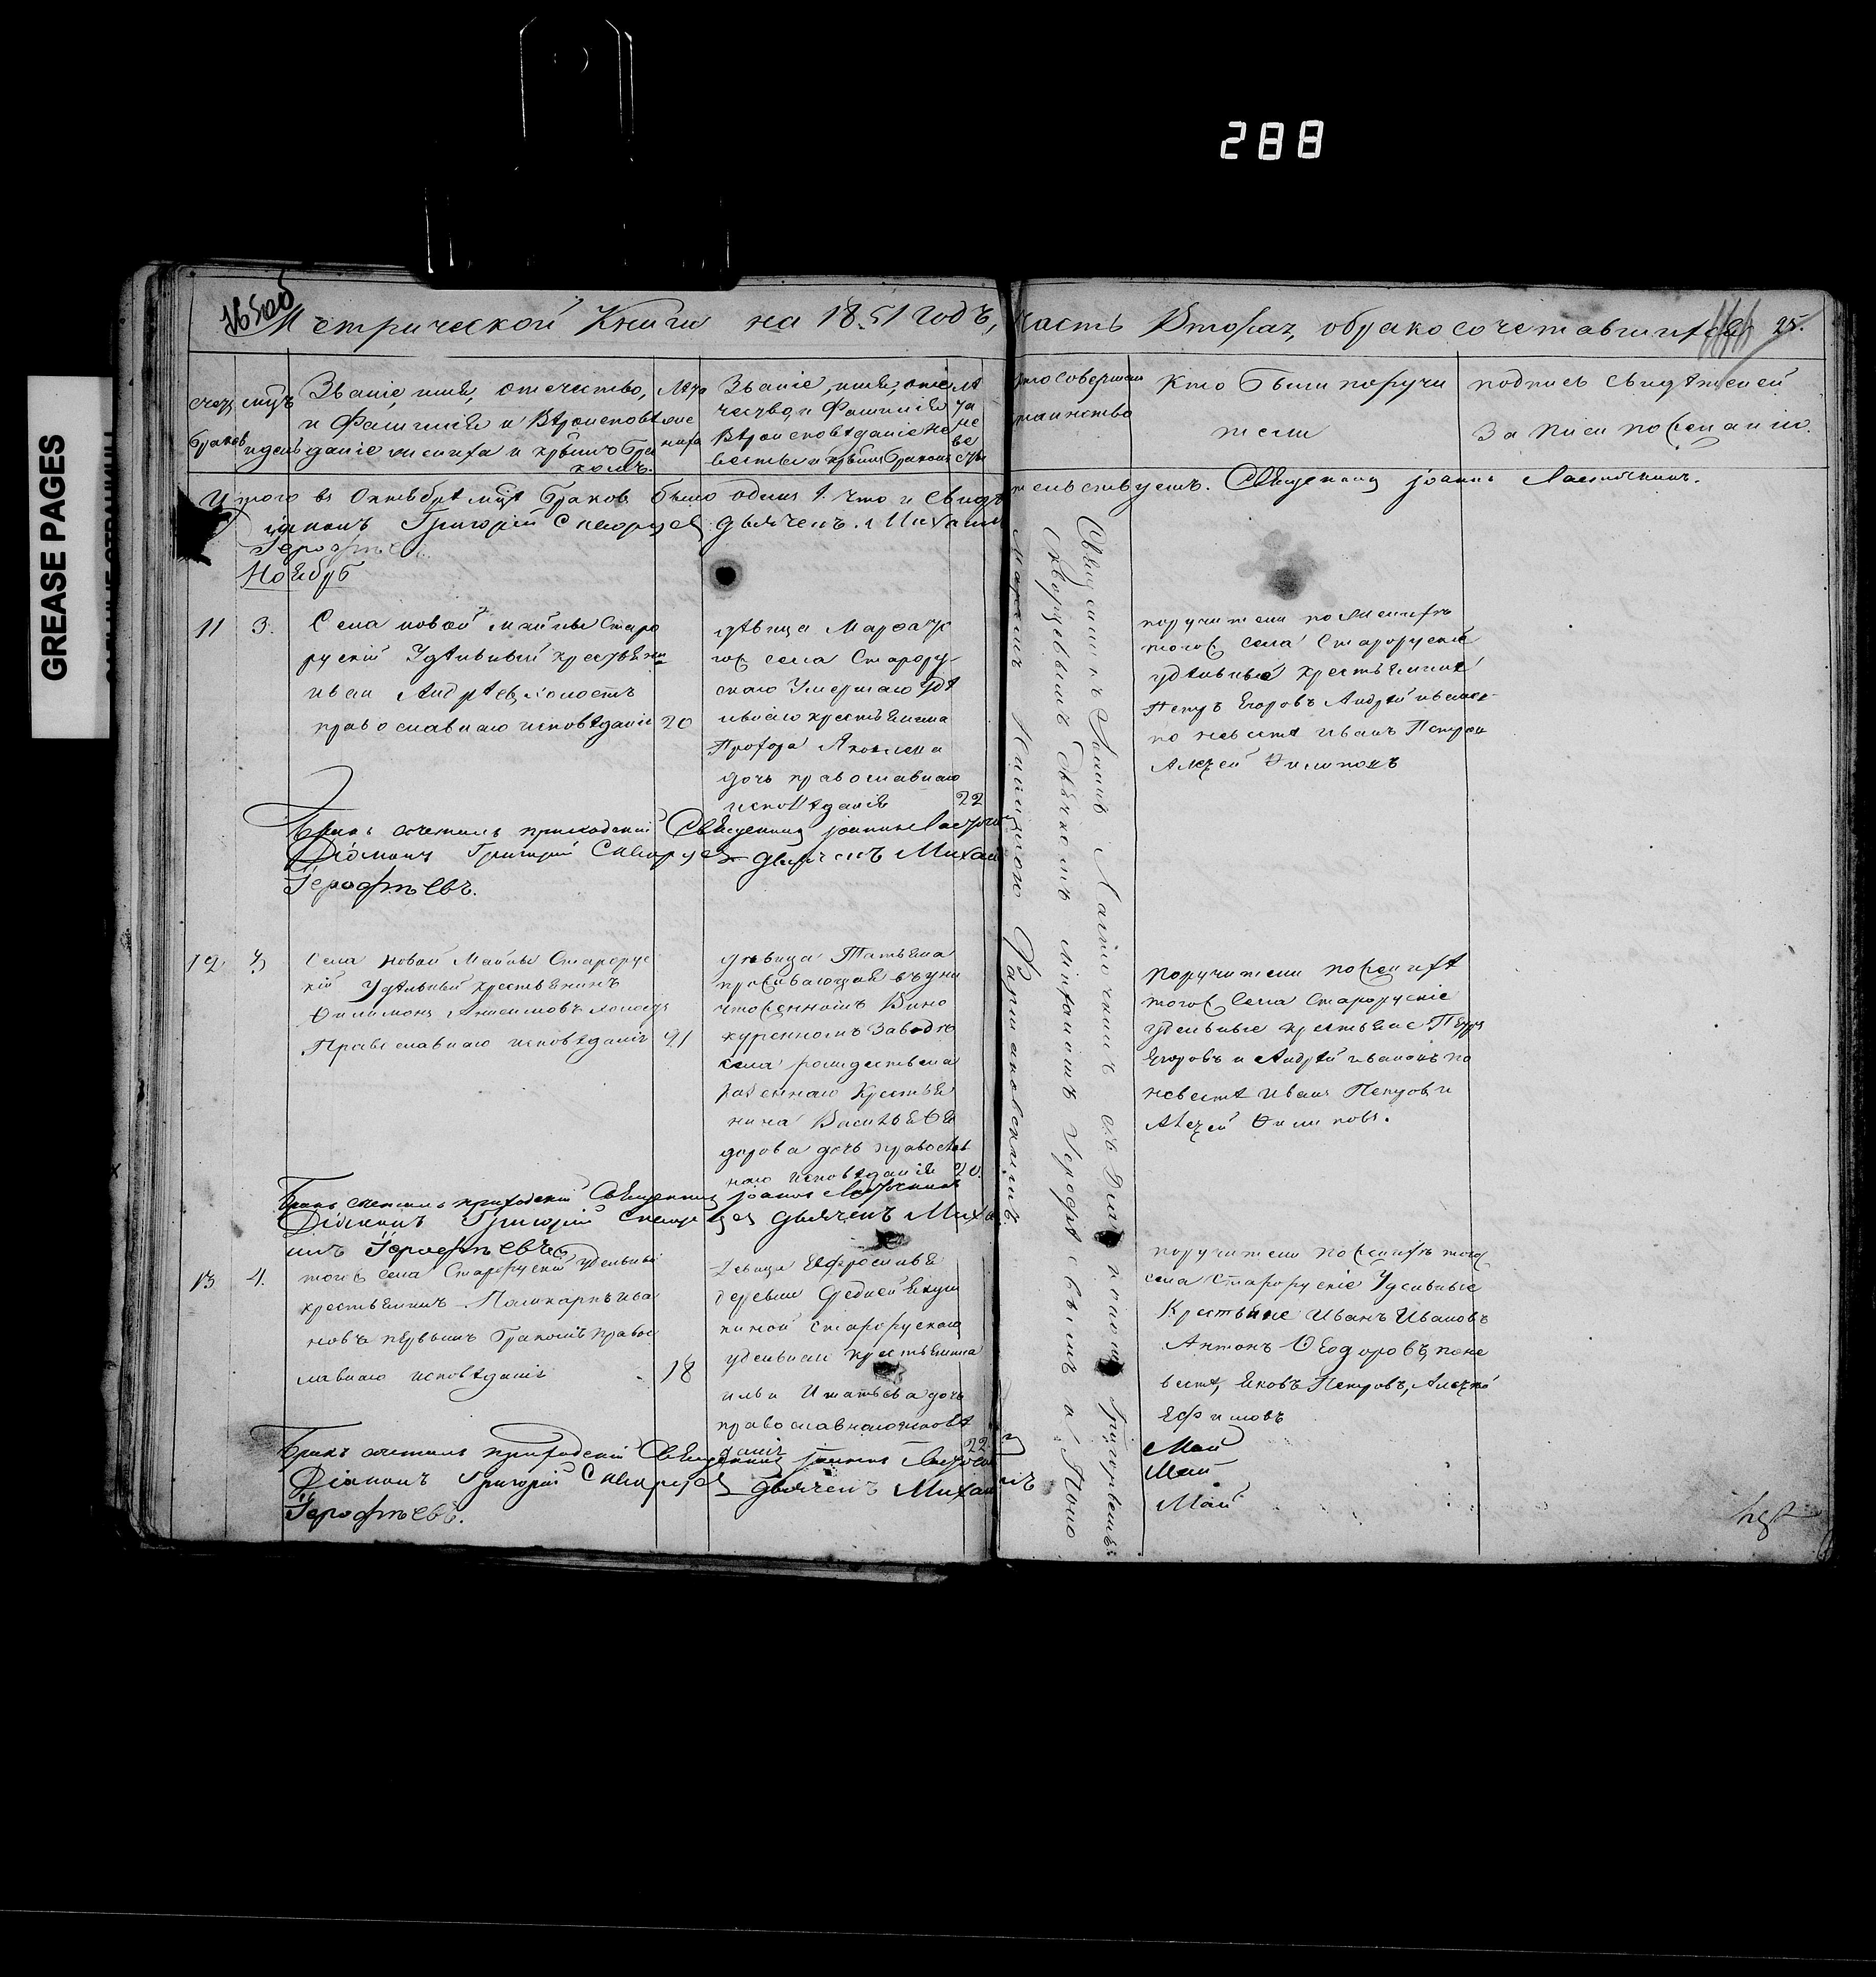 288
GREASE PAGES
Метрической Книги на 1851 годъ, часть Вторая, о бракосочетавшихся 25.
счетъ браковъ
мцъ и день
Званіе, имя, отечество,
и Фамилія и Вѣроисповѣ
даніе жениха и крымъ бра
комъ.
Лета
жениха
Званіе, имя, отче
чество, и Фамилія
Вѣроисповѣданіе не
весты и крымъ бракомъ
Кто совершалъ
таинство
Кто были поручи
тели
подпись свидѣтелей
записи по желанію.
Итого въ Октябрѣ мцѣ браковъ было одинъ 1. Что и Свидѣтельствуетъ. Священникъ Іоаннъ
Діаконъ Григорій Скворцевъ дьячекъ Михаилъ
Герофѣевъ
Ноябрь
11
3.
Села новой майны Старо
рускій Удѣльный крестьянинъ
иван Андрѣевъ холостъ
православнаго исповѣданія
20
дѣвица Марфа то
гож села Старору
скаго Умершаго Удѣ
льнаго крестьянина
Прохора Яковлева
дочь православнаго
исповѣданія
22
поручители по женихѣ
тогож села Старорускіе
удѣльные крестьяне
Петръ Егоровъ Андрей иванов
по невѣстѣ иванъ Петров
Алекѣй Филиповъ
Бракъ сочеталъ приходскій Священникъ Іоаннъ
Діаконъ Григорій Скворцевъ дьячекъ Михаилъ
Герофѣевъ.
12
Села Новой Майны Старорус
кій Удѣльный крестьянинъ
Филимонъ Анисимовъ холостъ
Православнаго исповѣданія
21
дѣвица Татьяна
проживающая въ уни
чтоженномъ Вино
куренномъ Заводѣ
села рождествена
казеннаго Крестья
нина Василья Фе
дорова дочь православ
наго исповѣданія
20.
поручители по женихѣ
тогож Села Старорускіе
удельные крестьяне Петръ
Егоровъ и Андрей ивановъ по
невестѣ иванъ Петровъ и
Алекѣй Филиповъ.
Бракъ сочеталъ приходскій Священникъ Іоаннъ
Діаконъ Григорій Скворцевъ дьячекъ Миха
илъ Герофѣевъ
13
4.
тогож села Старорускій удельный
крестьянинъ Поликарпъ Ива
новъ первымъ бракомъ правос
лавнаго исповѣданія
18
девица Ефросинья
деревни Средней Якуш
киной Старорускаго
удельнаго крестьянина
ильи Игнатьева дочь
православнаго исповѣ
данія
22
поручители по женихѣ тогож
села Старорускіе Удельные
Крестьяне Иванъ Ивановъ
Антонъ Ѳеодоровъ, по не
вестѣ, Яковъ Петровъ, Алексѣй
Ефимовъ
Бракъ сочеталъ приходскій Священникъ Іоаннъ
Діаконъ Григорій Скворцевъ дьячекъ Михаилъ
Герофѣевъ.
Май
Май
Май
Священникъ Іоаннъ съ Діакономъ Григорьемъ
Скворцевымъ дьячкомъ Михаиломъ Герофѣевымъ и Поно